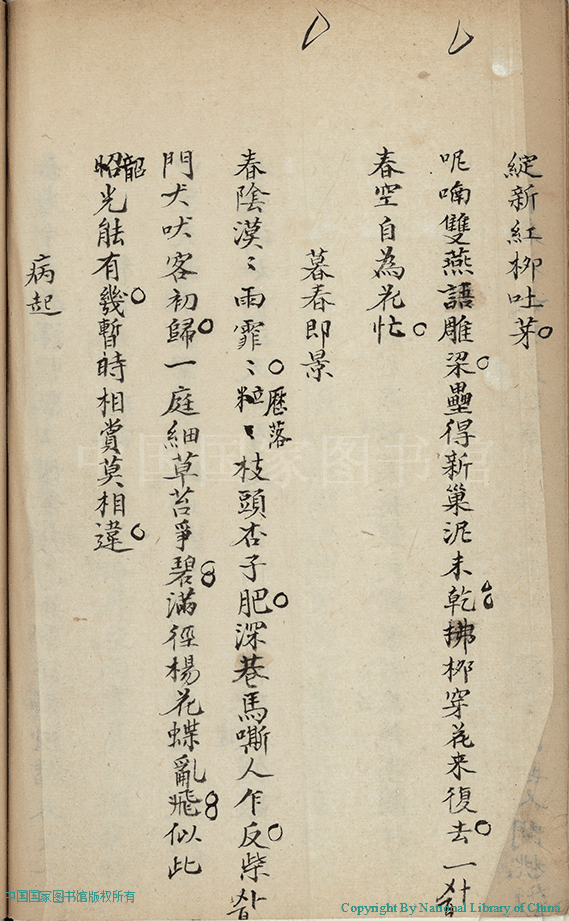 綻新紅柳吐芽
呢喃雙燕語雕梁壘得新巢泥未乾拂柳穿花来復去一斜
春空自為花忙
暮春即景
春陰漠〻雨霏〻粒〻枝頭杏子肥深巷馬嘶人乍反柴
歷落
門犬吠客初歸一庭細草苔爭碧滿徑楊花蝶亂飛似此
韶光能有幾暫時相賞莫相違
病起
中国国家图书馆
中国国家图书馆版权所有
Copyright By National Library of China